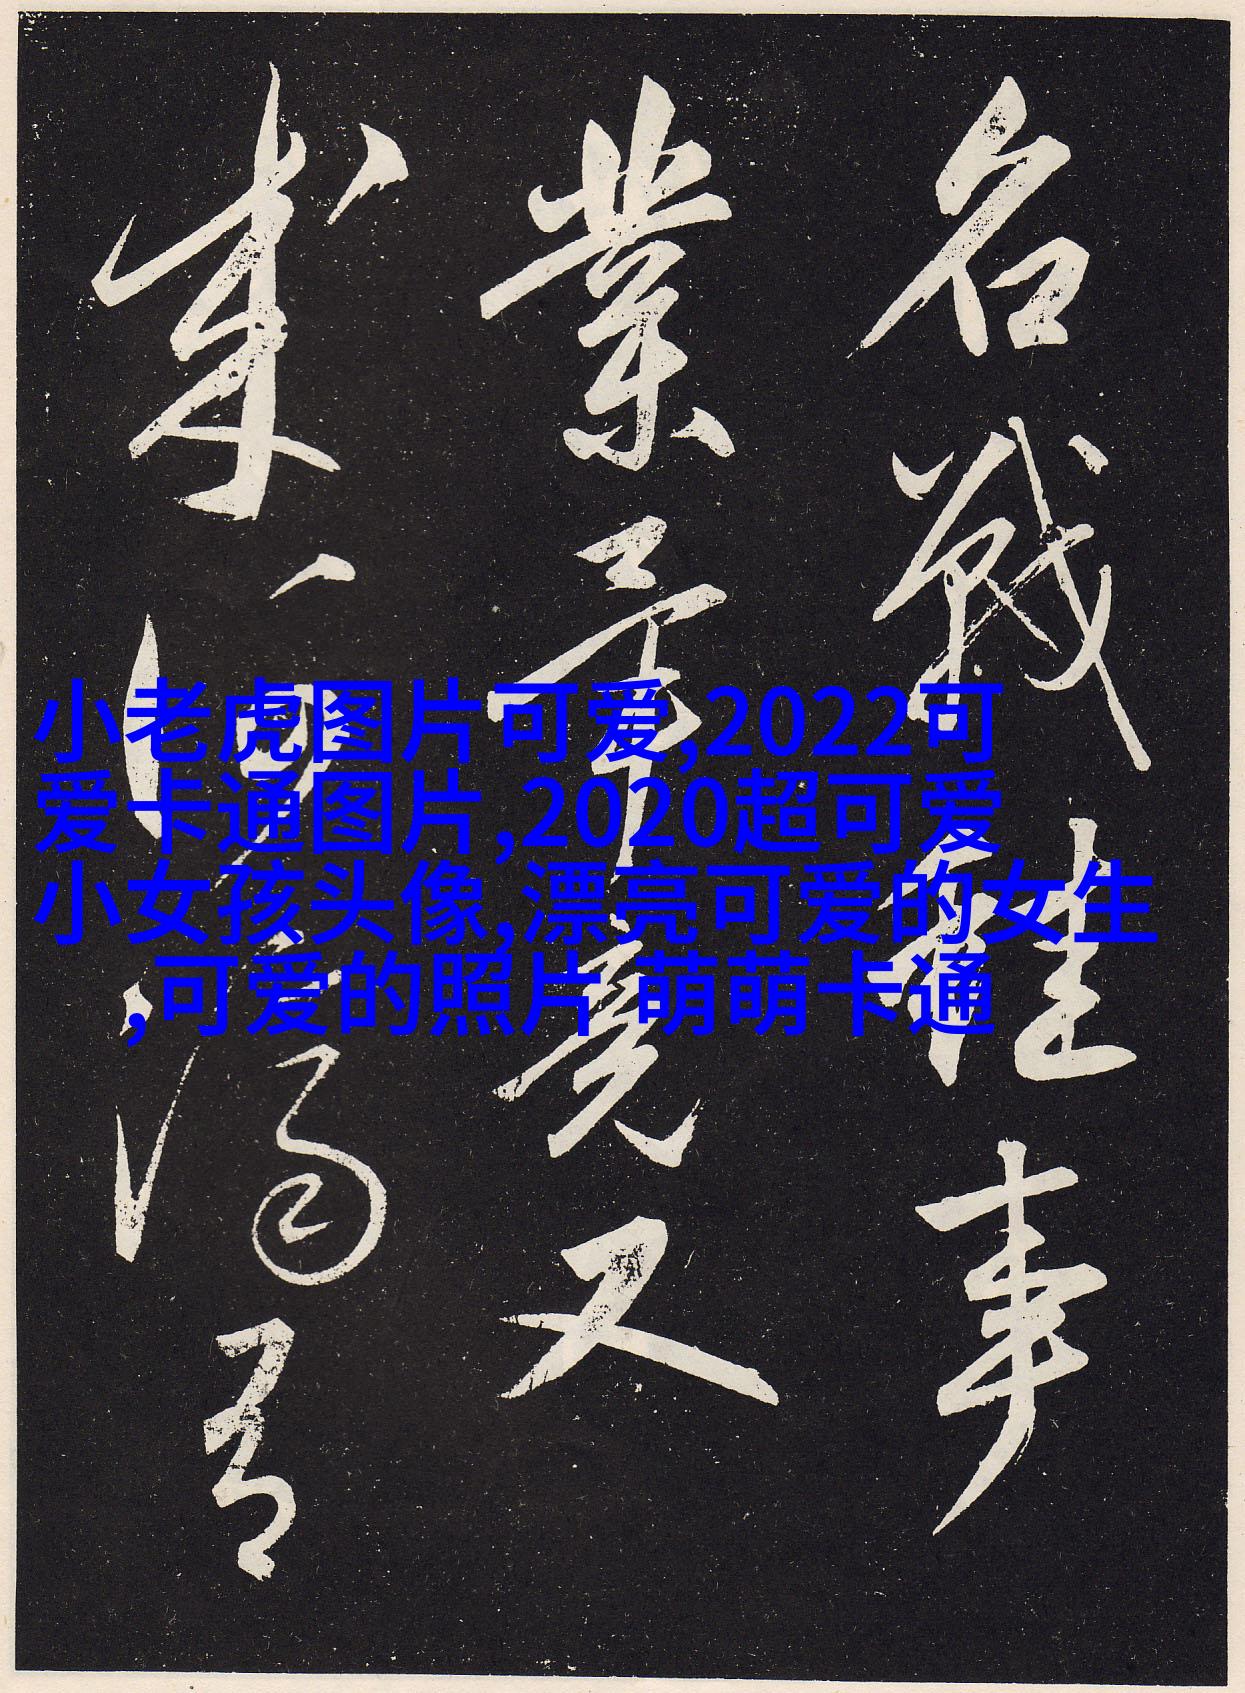 名戰事
業竟又
成何
小老虎图片可爱,2022可
爱卡通图片,2020超可爱
小女孩头像,漂亮可爱的女生
,可爱的照片 萌萌卡通